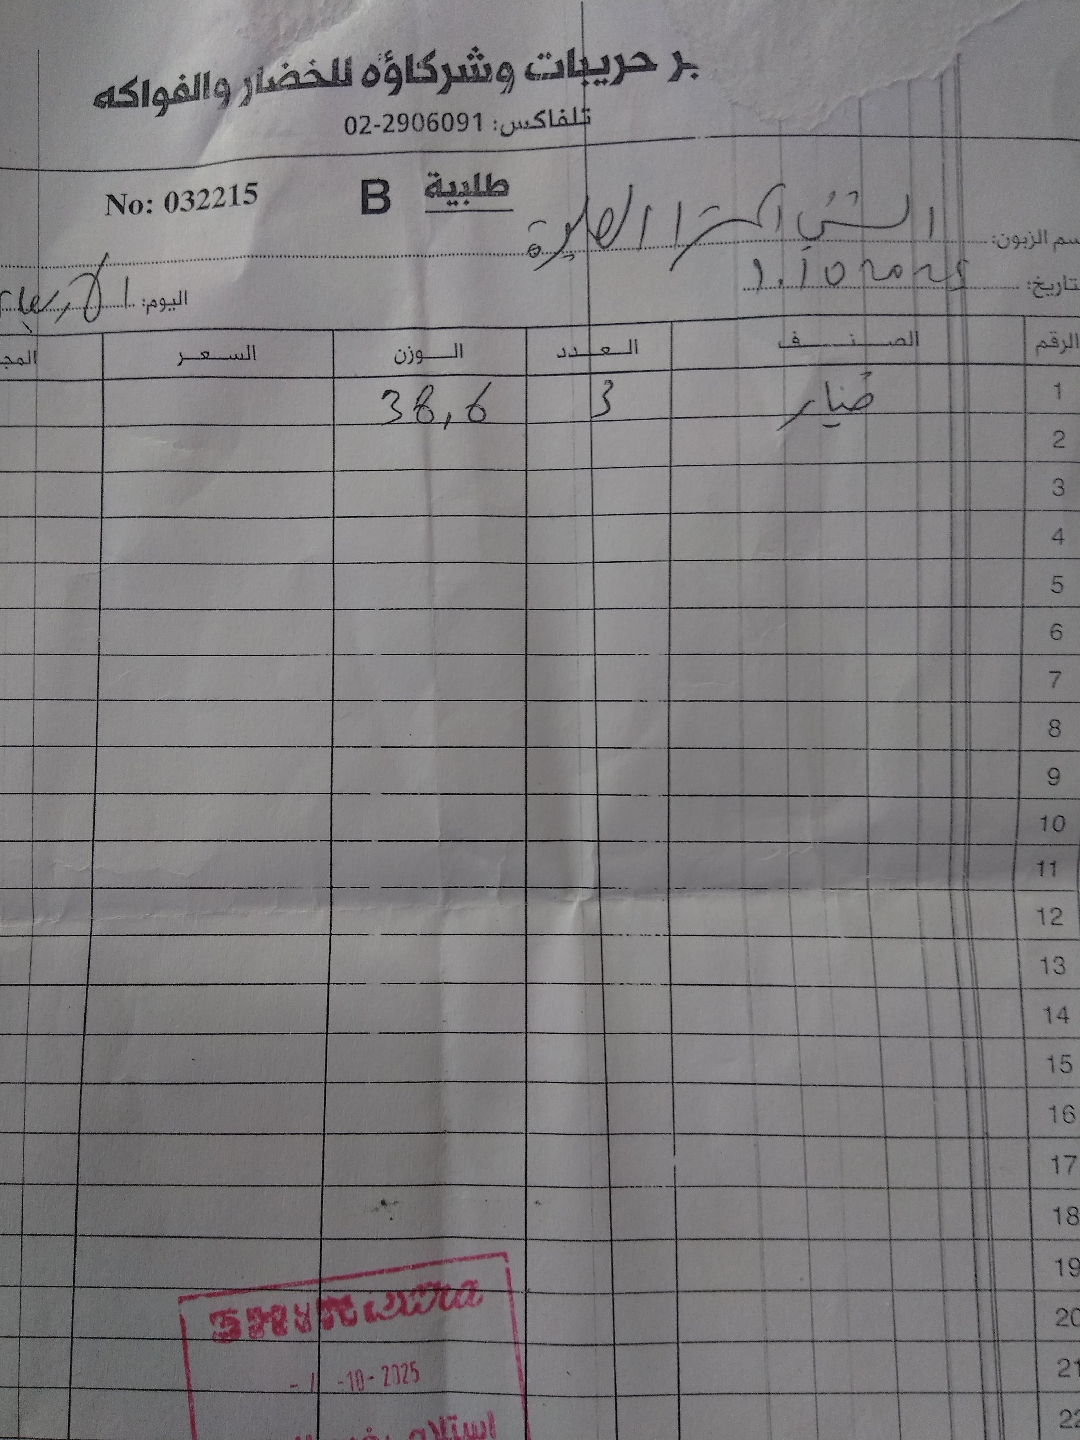 بر حريبات وشركاؤه للخضار والفواكه
تلفاكس: 02-2906091
طلبية B No: 032215
سم الزبون:
تاريخ: اليوم: الأربعاء
الرقم الصنف العدد الوزن السعر المجـ
1 خيار 3 38,6
2
3
4
5
6
7
8
9
10
11
12
13
14
15
16
17
18
19
20
21
22
-1 -10- 2025
استلام